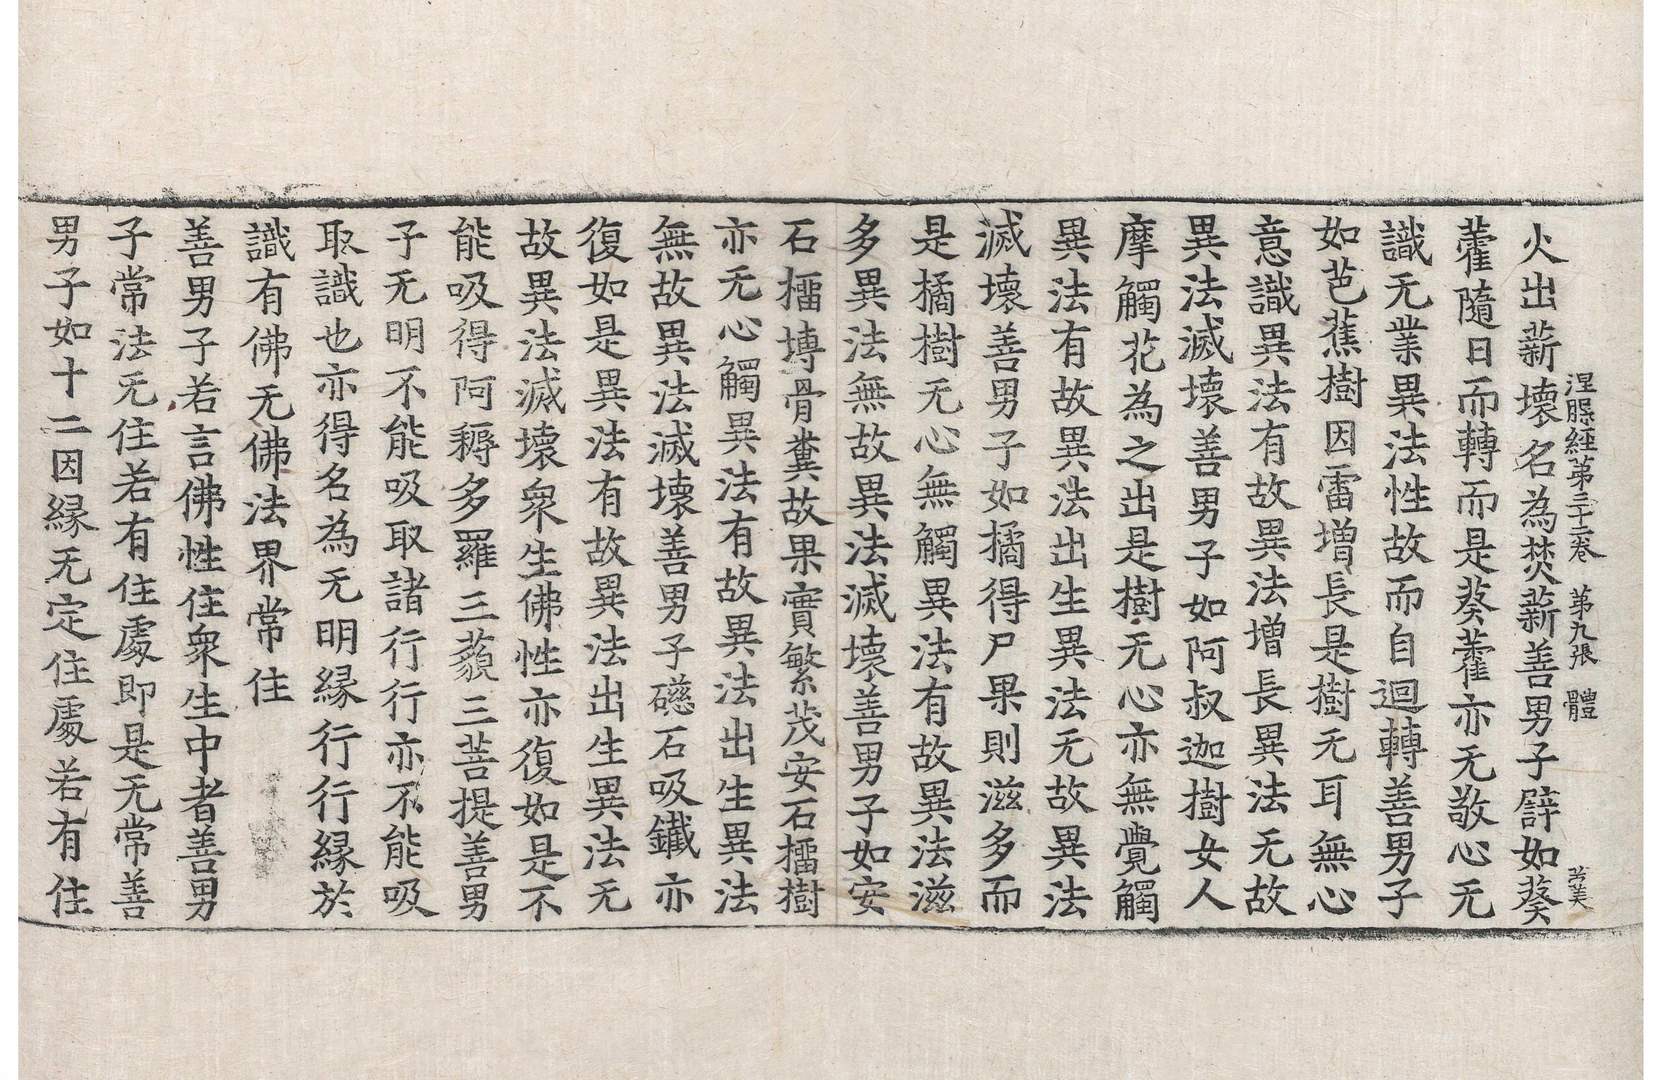 涅槃經第三十二卷 第九張 體
火出薪壞名為焚薪善男子譬如葵
藿隨日而轉而是葵藿亦无敬心无
識无業異法性故而自迴轉善男子
如芭蕉樹因雷增長是樹无耳無心
意識異法有故異法增長異法无故
異法滅壞善男子如阿叔迦樹女人
摩觸花為之出是樹无心亦無覺觸
異法有故異法出生異法无故異法
滅壞善男子如橘得尸果則滋多而
是橘樹无心無觸異法有故異法滋
多異法無故異法滅壞善男子如安
石榴塼骨糞故果實繁茂安石榴樹
亦无心觸異法有故異法出生異法
無故異法滅壞善男子磁石吸鐵亦
復如是異法有故異法出生異法无
故異法滅壞衆生佛性亦復如是不
能吸得阿耨多羅三藐三菩提善男
子无明不能吸取諸行行亦不能吸
取識也亦得名為无明緣行行緣於
識有佛无佛法界常住
善男子若言佛性住衆生中者善男
子常法无住若有住處即是无常善
男子如十二因緣无定住處若有住